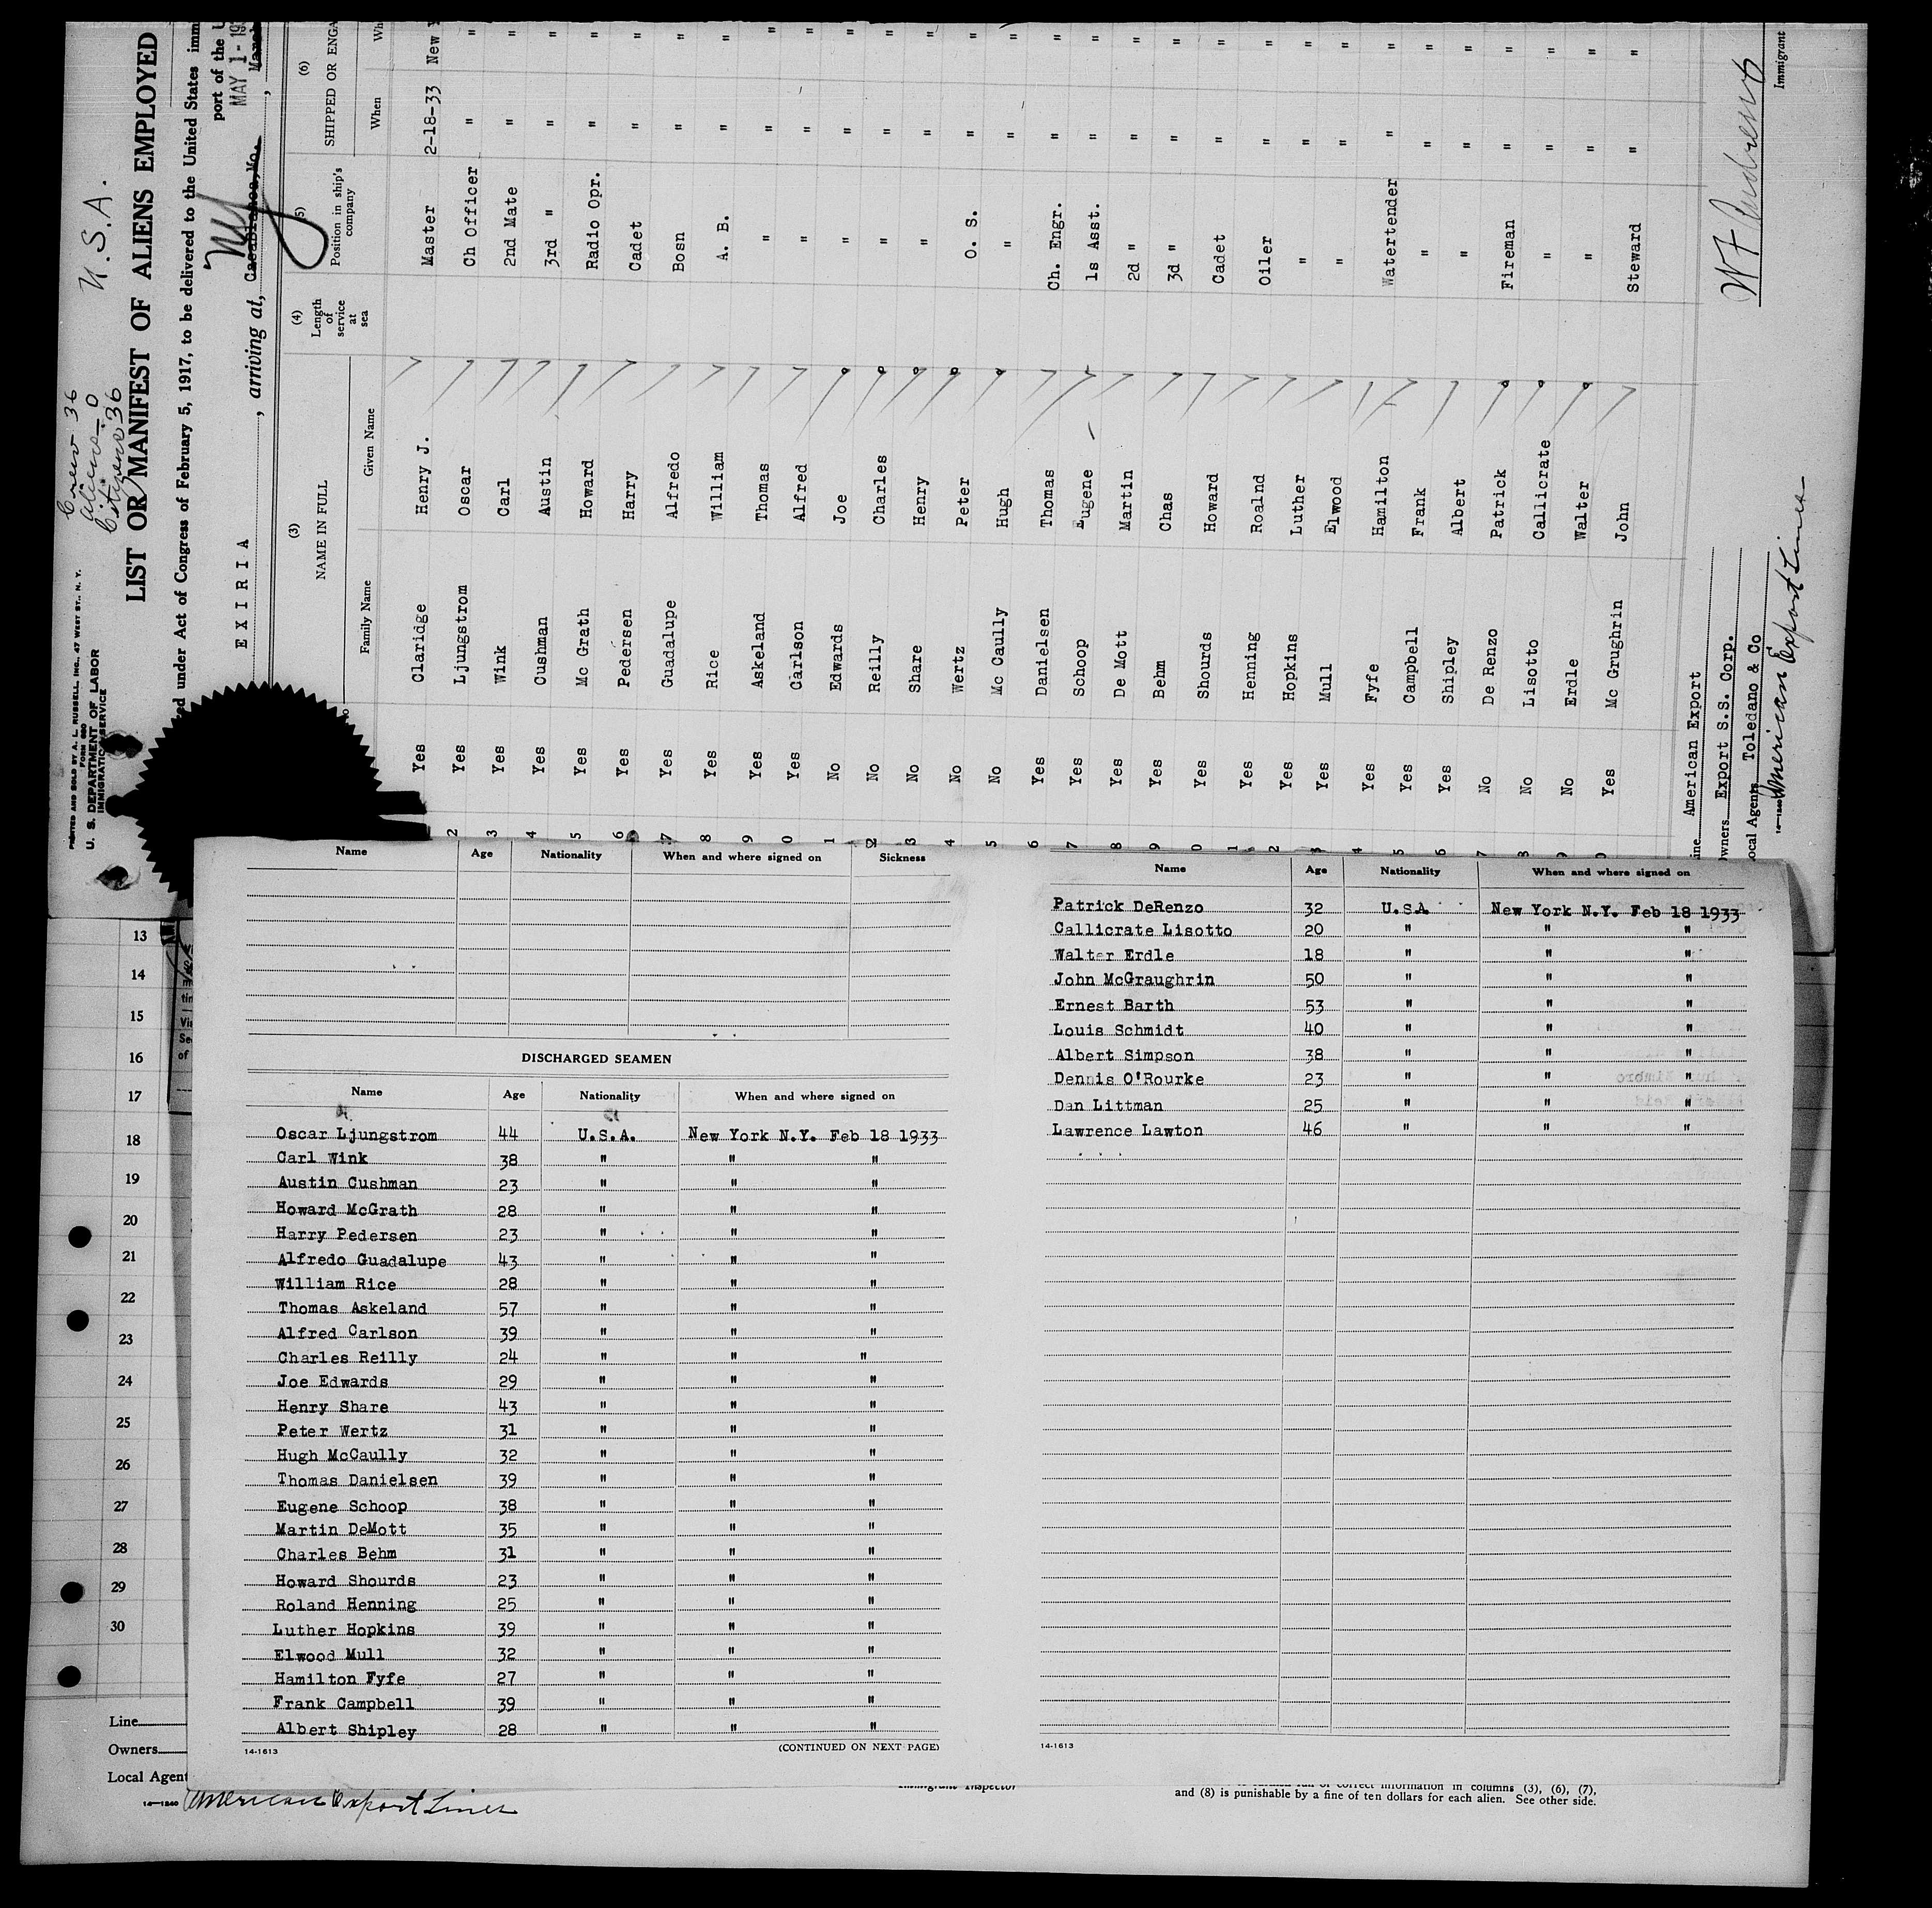 Crew 36
Aliens - 0
Citizens 36
U.S.A.
PRINTED AND SOLD BY A. L. RUSSELL, INC., 47 WEST ST., N. Y.
U. S. DEPARTMENT OF LABOR
IMMIGRATION SERVICE
LIST OR MANIFEST OF ALIENS EMPLOYED
under Act of Congress of February 5, 1917, to be delivered to the United States imm
port of the U
EXIRIA , arriving at, Casablanca, Mo. , MAY 1- 193
NY
(3) (4) (5) (6)
NAME IN FULL Length of service at sea Position in ship's company SHIPPED OR ENGA
Family Name Given Name When Wh
Yes Claridge Henry J. Master 2-18-33 New Y
2 Yes Ljungstrom Oscar Ch Officer " "
3 Yes Wink Carl 2nd Mate " "
4 Yes Cushman Austin 3rd " " "
5 Yes Mc Grath Howard Radio Opr. " "
6 Yes Pedersen Harry Cadet " "
7 Yes Guadalupe Alfredo Bosn " "
8 Yes Rice William A. B. " "
9 Yes Askeland Thomas " " "
0 Yes Carlson Alfred " " "
1 No Edwards Joe " " "
2 No Reilly Charles " " "
3 No Share Henry " " "
4 No Wertz Peter O. S. " "
5 No Mc Caully Hugh " " "
6 Yes Danielsen Thomas Ch. Engr. " "
7 Yes Schoop Eugene 1s Asst. " "
8 Yes De Mott Martin 2d " " "
9 Yes Behm Chas 3d " " "
0 Yes Shourds Howard Cadet " "
1 Yes Henning Roalnd Oiler " "
2 Yes Hopkins Luther " " "
3 Yes Mull Elwood " " "
4 Yes Fyfe Hamilton Watertender " "
5 Yes Campbell Frank " " "
6 Yes Shipley Albert " " "
7 No De Renzo Patrick Fireman " "
8 No Lisotto Callicrate " " "
9 No Erdle Walter " " "
0 Yes Mc Grughrin John Steward " "
ine American Export
wners Export S.S. Corp.
ocal Agents Toledano & Co
American Export Lines
14-1240
Immigrant
Name Age Nationality When and where signed on Sickness
DISCHARGED SEAMEN
Name Age Nationality When and where signed on
Oscar Ljungstrom 44 U.S.A. New York N.Y. Feb 18 1933
Carl Wink 38 " " "
Austin Cushman 23 " " "
Howard McGrath 28 " " "
Harry Pedersen 23 " " "
Alfredo Guadalupe 43 " " "
William Rice 28 " " "
Thomas Askeland 57 " " "
Alfred Carlson 39 " " "
Charles Reilly 24 " " "
Joe Edwards 29 " " "
Henry Share 43 " " "
Peter Wertz 31 " " "
Hugh McCaully 32 " " "
Thomas Danielsen 39 " " "
Eugene Schoop 38 " " "
Martin DeMott 35 " " "
Charles Behm 31 " " "
Howard Shourds 23 " " "
Roland Henning 25 " " "
Luther Hopkins 39 " " "
Elwood Mull 32 " " "
Hamilton Fyfe 27 " " "
Frank Campbell 39 " " "
Albert Shipley 28 " " "
14-1613 (CONTINUED ON NEXT PAGE)
Name Age Nationality When and where signed on
Patrick DeRenzo 32 U.S.A. New York N.Y. Feb 18 1933
Callicrate Lisotto 20 " " "
Walter Erdle 18 " " "
John McGraughrin 50 " " "
Ernest Barth 53 " " "
Louis Schmidt 40 " " "
Albert Simpson 38 " " "
Dennis O'Rourke 23 " " "
Dan Littman 25 " " "
Lawrence Lawton 46 " " "
14-1613
13
14
15
16
17
18
19
20
21
22
23
24
25
26
27
28
29
30
Line
Owners
Local Agent
14-1240
American Export Lines
Immigrant Inspector
correct information in columns (3), (6), (7),
and (8) is punishable by a fine of ten dollars for each alien. See other side.